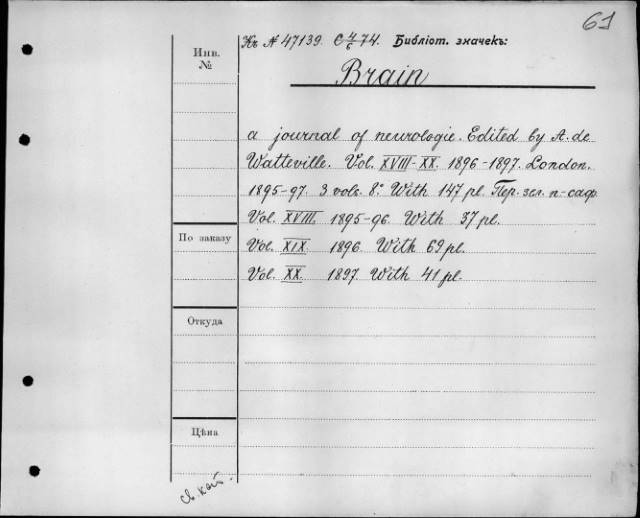 61
Къ № 47139. С 4/6 74. Библіот. значекъ:
Инв. №
Brain
a journal of neurologie. Edited by A. de
Watteville. Vol. XVIII-XX. 1896-1897. London.
1895-97. 3 vols. 8°. With 147 pl. Пер. зел. п-саф.
Vol. XVIII. 1895-96. With 37 pl.
По заказу
Vol. XIX. 1896. With 69 pl.
Vol. XX. 1897. With 41 pl.
Откуда
Цѣна
св. кат.